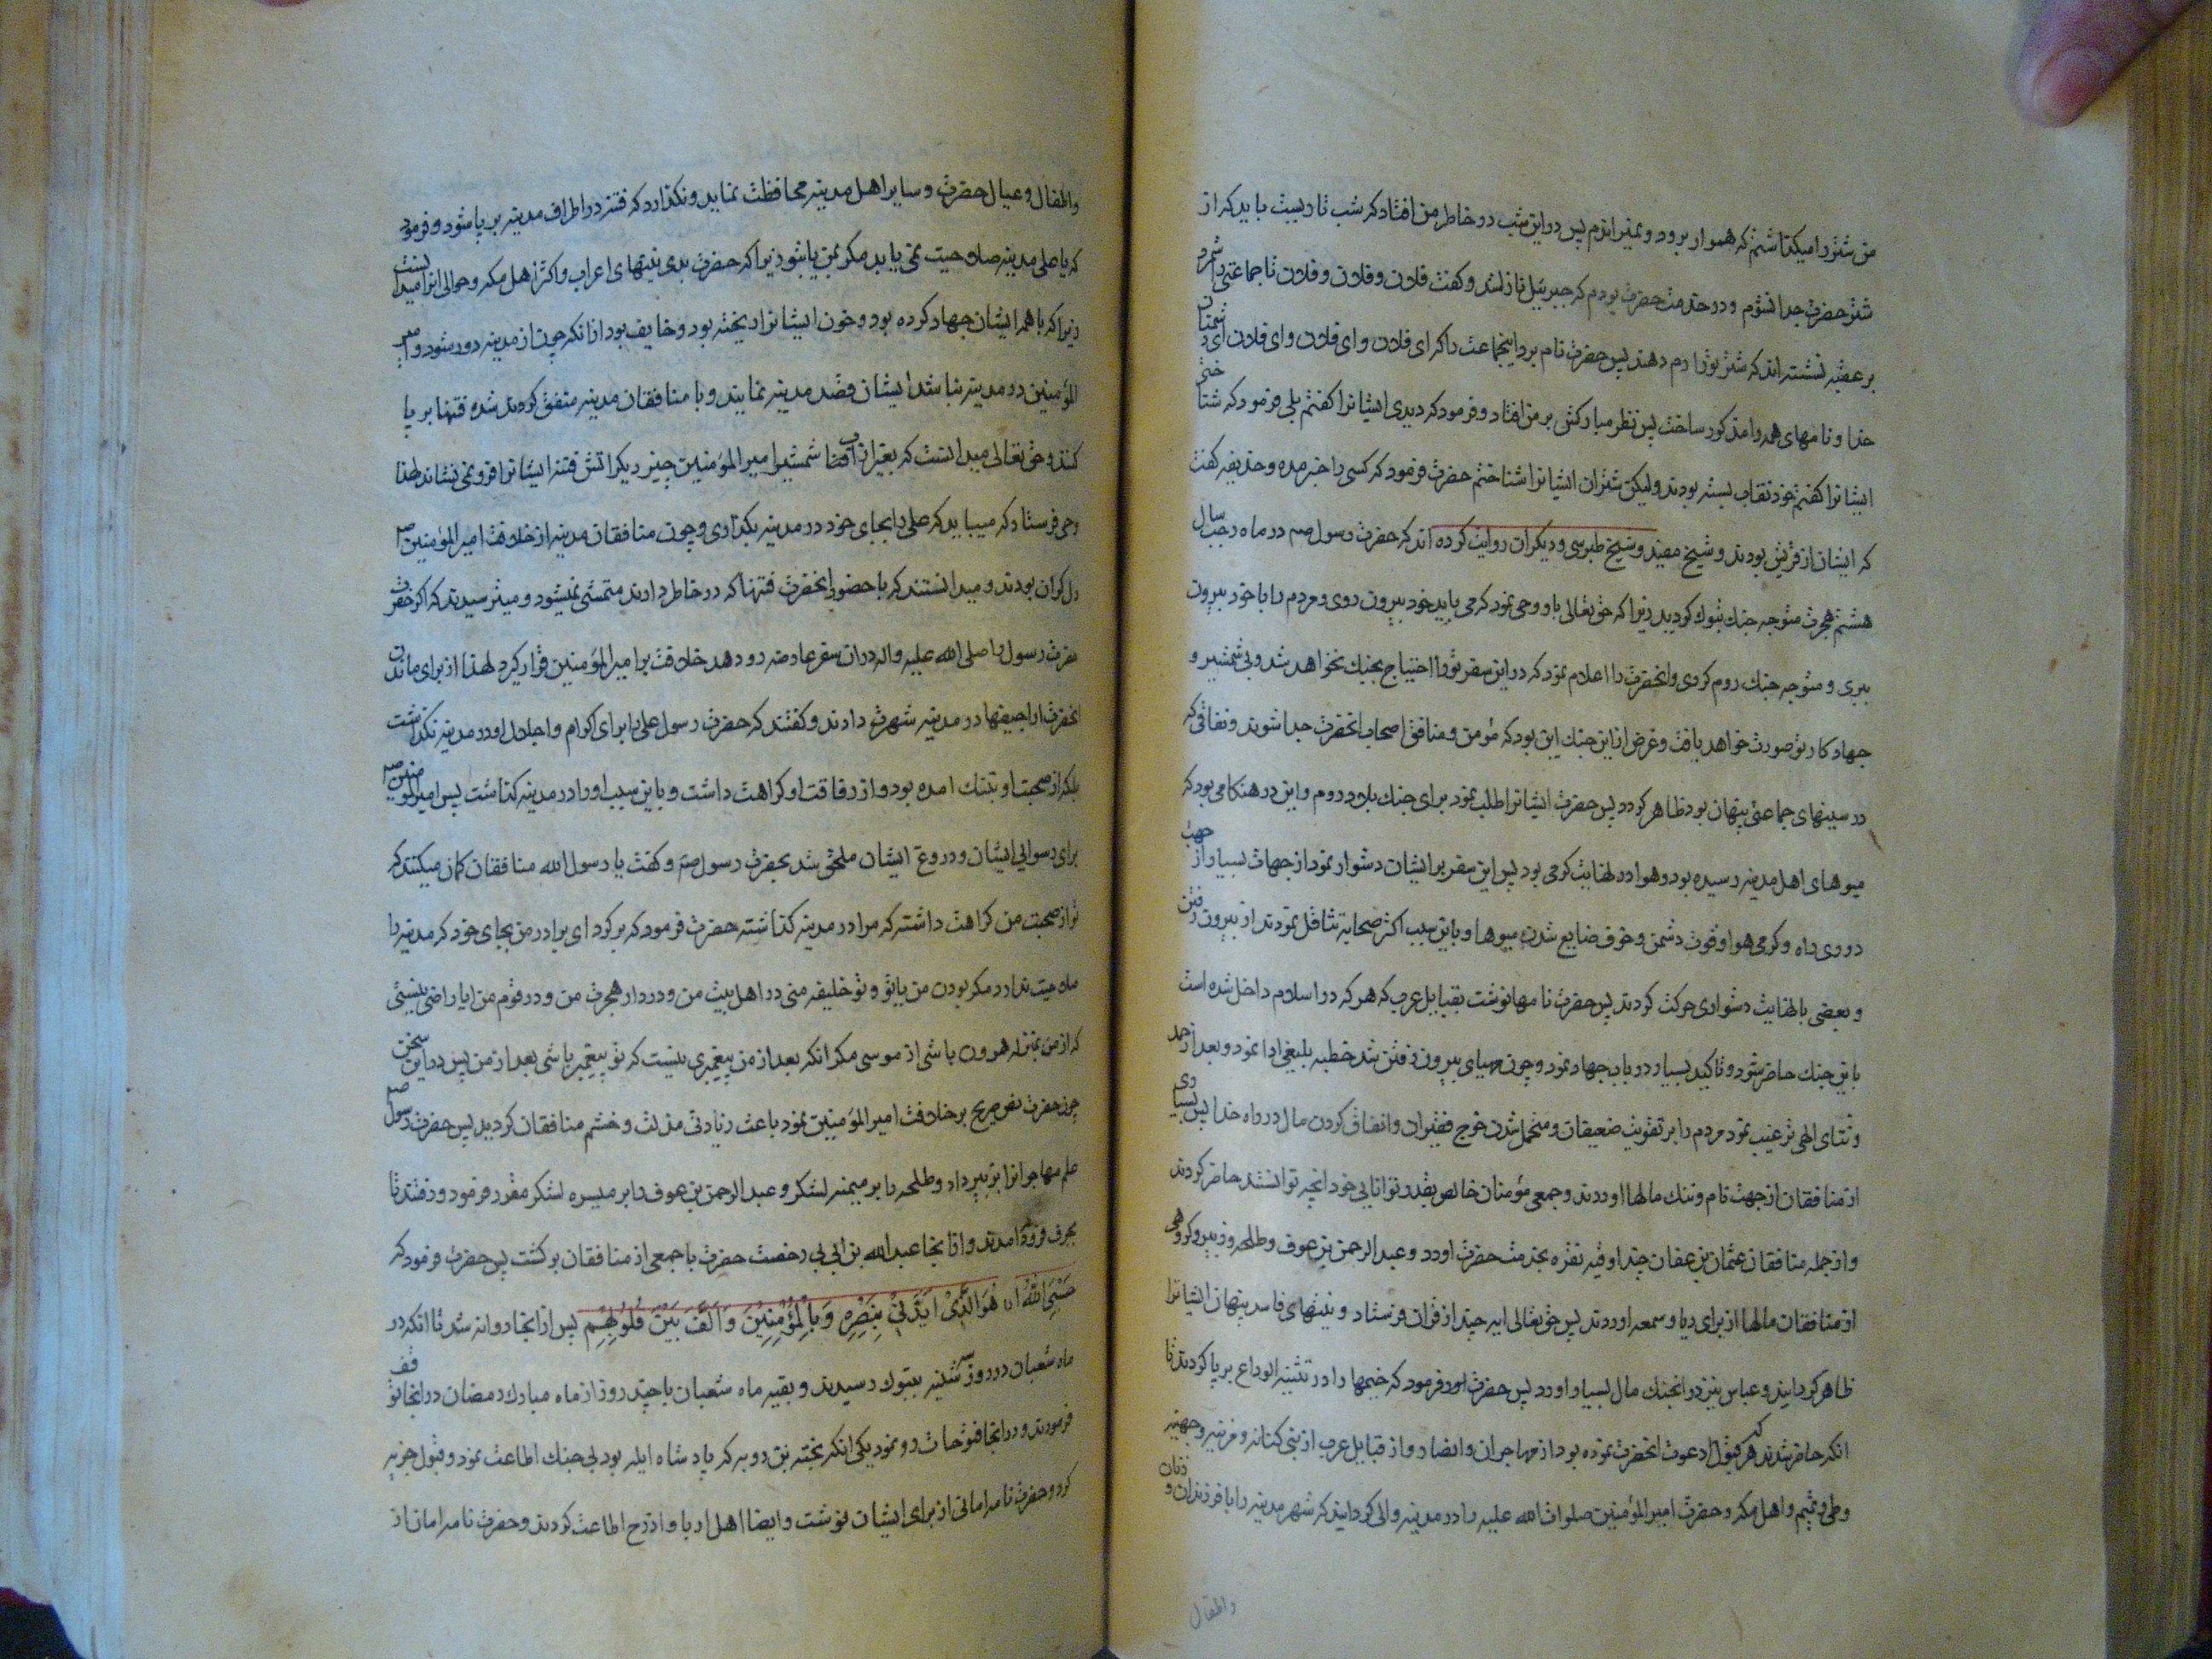 من شتر را میکذاشتم که هموار برود و نمیراندم پس در این شب در خاطر من افتاد که شب تاریست باید که از
شتر حضرت جدا نشوم و در خدمت حضرت بودم که جبرئیل نازل شد و کفت فلان و فلان و فلان تا جماعتی را شمرد
بر عقبه نشسته اند که شتر تو را رم دهند پس حضرت نام برد اینجماعت را که ای فلان و ای فلان و ای فلان ای دشمنان
خدا و نامهای همه را مذکور ساخت پس نظر مبارکش بر من افتاد و فرمود که دیدی ایشانرا کفتم بلی فرمود که شناختی
ایشانرا کفتم خود نقاب بسته بودند ولیکن شتران ایشانرا شناختم حضرت فرمود که کسی را خبر مده و حذیفه کفت
که ایشان از قریش بودند و شیخ مفید و شیخ طبرسی و دیکران روایت کرده اند که حضرت رسول صم در ماه رجب سال
هشتم هجرت متوجه جنك تبوك کردید زیرا که حق تعالی باو وحی نمود که می باید خود بیرون روی و مردم را با خود بیرون
ببری و متوجه جنك روم کردی و انحضرت را اعلام نمود که در این سفر تو را احتیاج بجنك نخواهد شد و بی شمشیر و
جهاد کار تو صورت خواهد یافت و غرض از این جنك این بود که مؤمن و منافق اصحاب انحضرت جدا شوند و نفاقی که
در سینهای جماعتی پنهان بود ظاهر کردد پس حضرت ایشانرا طلب نمود برای جنك بلاد روم و این در هنکامی بود که
میوهای اهل مدینه رسیده بود و هوا در نهایت کرمی بود پس این سفر بر ایشان دشوار نمود از جهات بسیار از جهت
دوری راه و کرمی هوا و قوت دشمن و خوف ضایع شدن میوها و باین سبب اکثر صحابه تثاقل نمودند از بیرون رفتن
و بعضی با نهایت دشواری حرکت کردند پس حضرت نامها نوشت بقبایل عرب که هر که در اسلام داخل شده است
باین جنك حاضر شود و تاکید بسیار در باب جهاد نمود و چون مهیای بیرون رفتن شد خطبه بلیغی ادا نمود و بعد از حمد
و ثنای الهی ترغیب نمود مردم را بر تقویت ضعیفان و متحمل شدن خرج فقیران و انفاق کردن مال در راه خدا پس بسیاری
از منافقان از جهت نام و ننك مالها اوردند و جمعی مؤمنان خالص بقدر توانایی خود انچه توانستند حاضر کردند
و از جمله منافقان عثمان بن عفان چند اوقیه نقره بخدمت حضرت اورد و عبد الرحمن بن عوف و طلحه و زبیر و کروهی
از منافقان مالها از برای ریا و سمعه اوردند پس حق تعالی ایه چند از قران فرستاد و نیتهای فاسد پنهان ایشانرا
ظاهر کردانید و عباس نیز در انجنك مال بسیار اورد پس حضرت فرمود که خیمها را در ثنیه الوداع بر پا کردند تا
انکه حاضر شدند هر که قبول دعوت انحضرت نموده بود از مهاجران و انصار و از قبایل عرب از بنی کنانه و مزنیه و جهینه
و طی و تمیم و اهل مکه و حضرت امیر المؤمنین صلوات الله علیه را در مدینه والی کردانید که شهر مدینه را با فرزندان و زنان
و اطفال
و اطفال و عیال حضرت و سایر اهل مدینه محافظت نماید و نکذارد که فتنه در اطراف مدینه بر پا شود و فرمود
که یا علی مدینه صلاحیت نمی یابد مکر بمن یا بتو زیرا که حضرت بدی نیتهای اعراب و اکثر اهل مکه و حوالی انرا میدانست
زیرا که با همه ایشان جهاد کرده بود و خون ایشانرا ریخته بود و خایف بود از انکه چون از مدینه دور شود و امیر
المؤمنین در مدینه نباشد ایشان قصد مدینه نمایند و با منافقان مدینه متفق کردند شده فتنها بر پا
کنند و حق تعالی میدانست که بغیر از آب شمشیر امیر المؤمنین چیز دیکر اتش فتنه ایشانرا فرو نمی نشاند لهذا
وحی فرستاد که میباید که علی را بجای خود در مدینه بکذاری و چون منافقان مدینه از خلافت امیر المؤمنین
دل کران بودند و میدانستند که با حضور انحضرت فتنها که در خاطر دارند متمشی نمیشود و میترسیدند که اکر حضرت
حضرت رسول را صلی الله علیه واله در ان سفر عارضه رو دهد خلافت بر امیر المؤمنین قرار کیرد لهذا از برای ماندن
انحضرت اراجیفها در مدینه شهرت دادند و کفتند که حضرت رسول علی را برای اکرام و اجلال او در مدینه نکذاشت
بلکه از صحبت او بتنك امده بود و از رفاقت او کراهت داشت و باین سبب او را در مدینه کذاشت پس امیر المؤمنین
برای رسوایی ایشان و دروغ ایشان ملحق شد بحضرت رسول صم و کفت یا رسول الله منافقان کمان میکنند که
تو از صحبت من کراهت داشته که مرا در مدینه کذاشته حضرت فرمود که برکرد ای برادر من بجای خود که مدینه را
صلاحیت ندارد مکر بودن من یا تو و تو خلیفه منی در اهل بیت من و در دار هجرت من و در قوم من ایا راضی نیستی
که از من بمنزله هرون باشی از موسی مکر انکه بعد از من پیغمبری نیست که تو پیغمبر باشی بعد از من پس در این سخن
چون حضرت نص صریح بر خلافت امیر المؤمنین نمود باعث زیادتی مذلت و خشم منافقان کردید پس حضرت رسول صم
علم مهاجرانرا بزبیر داد و طلحه را بر میمنه لشکر و عبد الرحمن بن عوف را بر میسره لشکر مقرر فرمود و رفتند تا
بجرف فرود امدند و از انجا عبد الله بن ابی بی رخصت حضرت با جمعی از منافقان برکشت پس حضرت فرمود که
حَسْبِیَ اللهُ هُوَ الَّذِیْ اَیَّدَنِیْ بِنَصْرِهِ وَبِالْمُؤْمِنِیْنَ وَاَلَّفَ بَیْنَ قُلُوبِهِمْ پس از انجا روانه شد تا انکه در
ماه شعبان در روز سه شنبه بتبوك رسیدند و بقیه ماه شعبان با چند روز از ماه مبارك رمضان در انجا توقف
فرمودند و در انجا فتوحات رو نمود یکی انکه بن روبه که پادشاه ایله بود بی جنك اطاعت نمود و قبول جزیه
کرد و حضرت نامه امانی از برای ایشان نوشت و ایضا اهل اربا و اذرح اطاعت کردند و حضرت نامه امان از